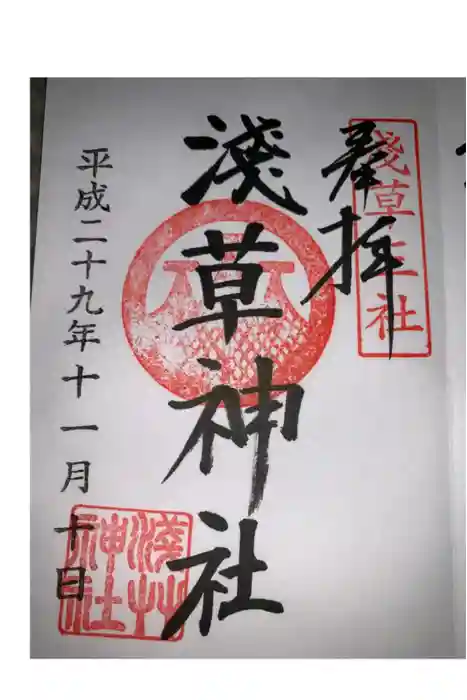 淺草三社
奉拝
淺草神社
平成二十九年十一月十日
淺艸
神社